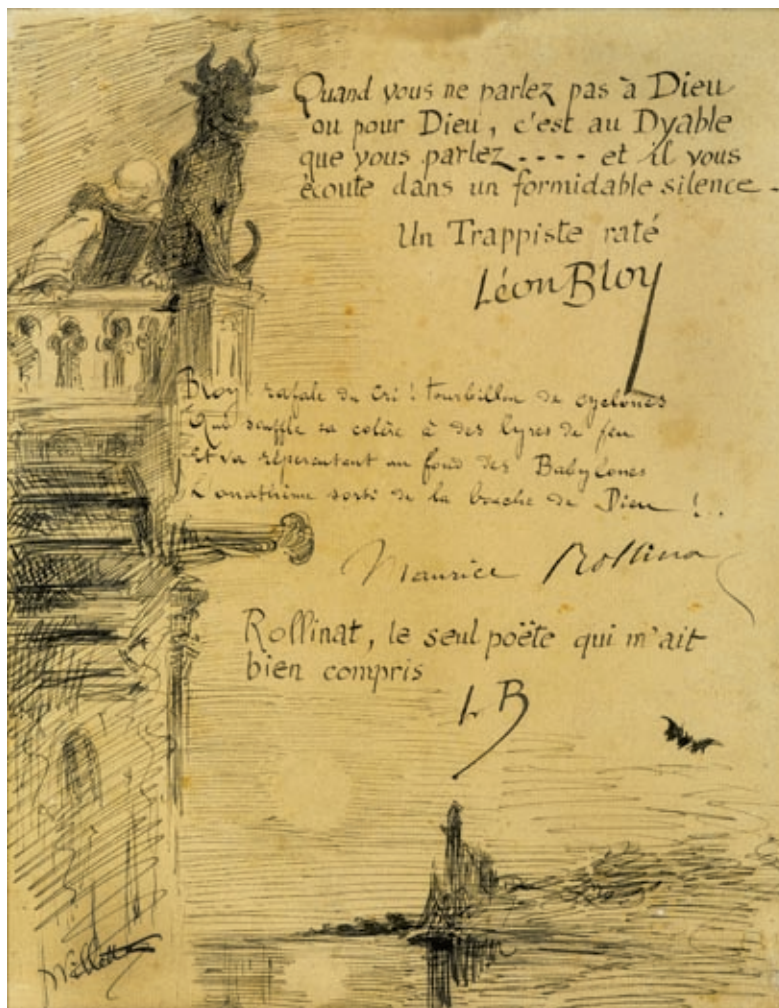 Quand vous ne parlez pas à Dieu
ou pour Dieu, c'est au Dyable
que vous parlez.... et il vous
écoute dans un formidable silence.
Un Trappiste raté
Léon Bloy
Bloy rafale du cri ! tourbillon de cyclones
Que souffle sa colère à des lyres de feu
Et va répercutant au fond des Babylones
L'anathème sorti de la bouche de Dieu !..
Maurice Rollinat
Rollinat, le seul poëte qui m'ait
bien compris
LB
Willette